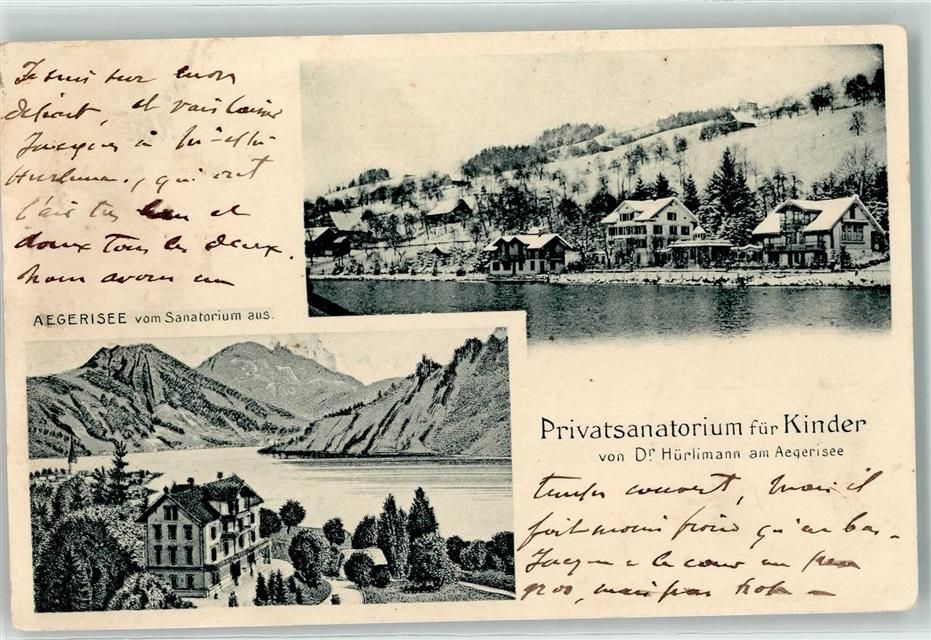 Je suis sur mon
départ, et vais laisser
Jacques à
Hurlimann, qui ont
l'air très bon et
doux tous les deux.
nous avons un
AEGERISEE vom Sanatorium aus.
Privatsanatorium für Kinder
von Dr Hürlimann am Aegerisee
temps couvert, mais il
fait moins froid qu'en bas.
Jacques a le cœur un peu
gros, mais pas trop